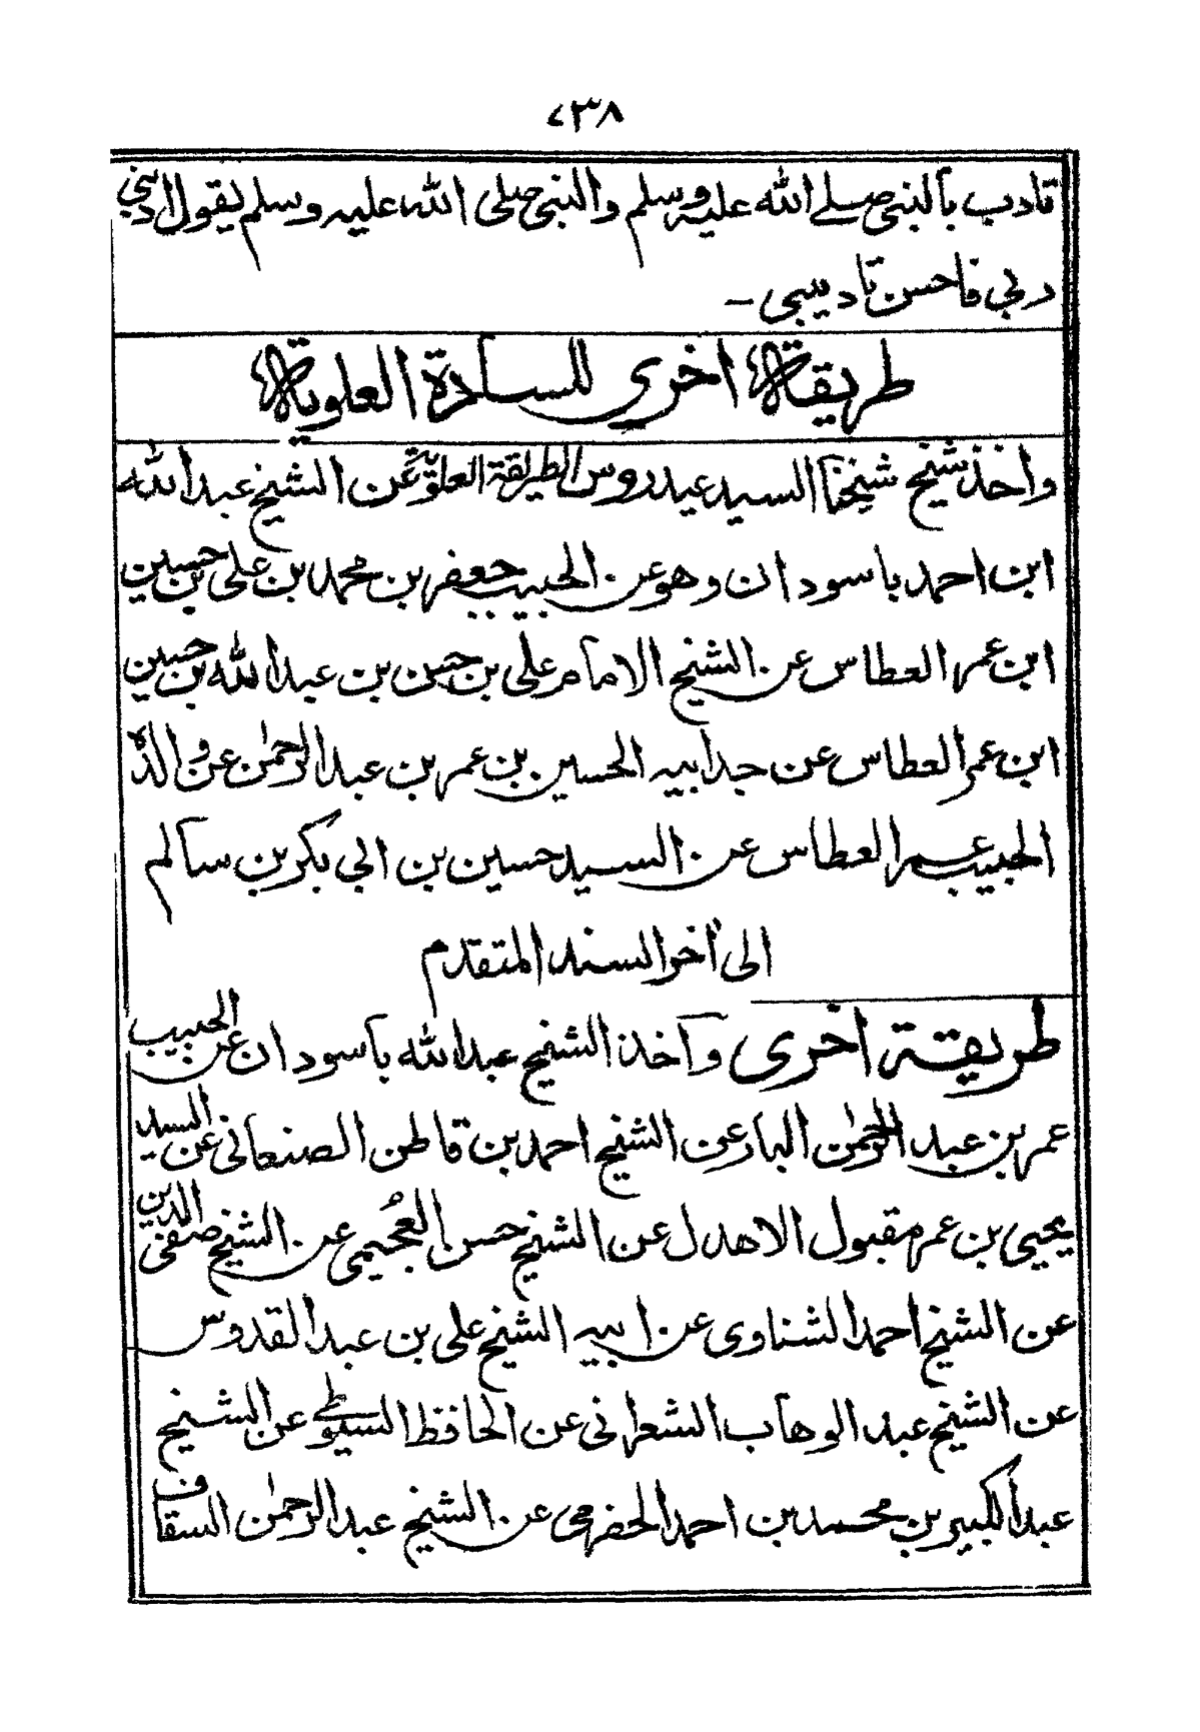 ٧٣٨
تادب بالنبی صلے اللہ علیہ وسلم والنبی صلی اللہ علیہ وسلم یقول ادبنی
ربی فاحسن تادیبی ۔
طریقة اخری للسادة العلویة
واخذ شیخ شیخنا السید عیدروس الطریقة العلویة عن الشیخ عبد اللہ
ابن احمد باسودان وهو عن الحبیب جعفر بن محمد بن علی بن حسین
ابن عمر العطاس عن الشیخ الامام علی بن حسن بن عبد اللہ بن حسین
ابن عمر العطاس عن جد ابیه الحسین بن عمر بن عبد الرحمٰن عن والدہ
الحبیب عمر العطاس عن السید حسین بن ابی بکر بن سالم
الی اٰخر السند المتقدم
طریقة اخری واخذ الشیخ عبد اللہ باسودان عن الحبیب
عمر بن عبد الرحمٰن البار عن الشیخ احمد بن قاطن الصنعانی عن السید
یحیی بن عمر مقبول الاهدل عن الشیخ حسن العُجیمی عن الشیخ صفی الدین
عن الشیخ احمد الشناوی عن ابیه الشیخ علی بن عبد القدوس
عن الشیخ عبد الوهاب الشعرانی عن الحافظ السیوطی عن الشیخ
عبد الکبیر بن محمد بن احمد الحضرمی عن الشیخ عبد الرحمٰن السقاف